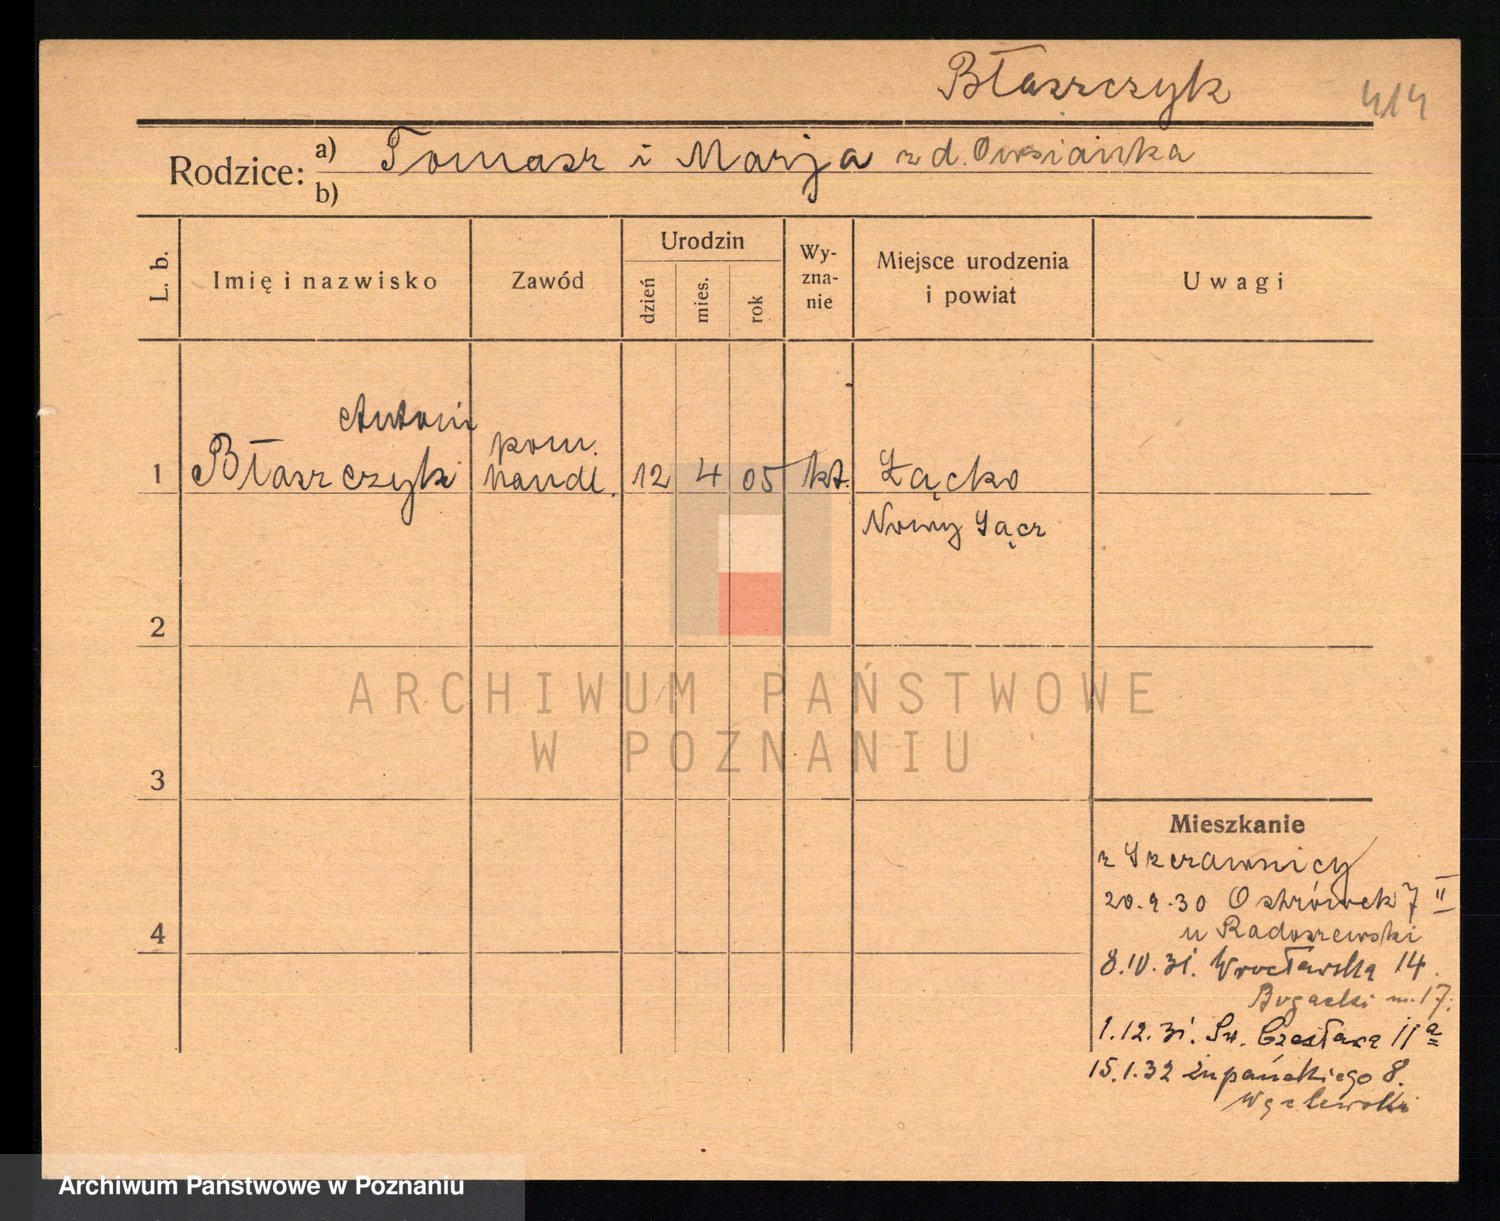 Błaszczyk
414
Rodzice: a) Tomasz i Marja z d. Owsianka
b)
L. b.
Imię i nazwisko
Zawód
Urodzin
dzień
mies.
rok
Wy-
zna-
nie
Miejsce urodzenia
i powiat
Uwagi
Antoni
1 Błaszczyk
pom.
handl.
12 4 05 kt. Łącko
Nowy Sącz
2
3
4
ARCHIWUM PAŃSTWOWE
W POZNANIU
Mieszkanie
z Szczawnicy
20.9.30 Ostrówek 7 II
u Radoszewski
8.IV.31. Wrocławska 14.
Bogacki m. 17.
1.12.31. Św. Czesława 11a
15.1.32 Żupańskiego 8.
Węclewski
Archiwum Państwowe w Poznaniu